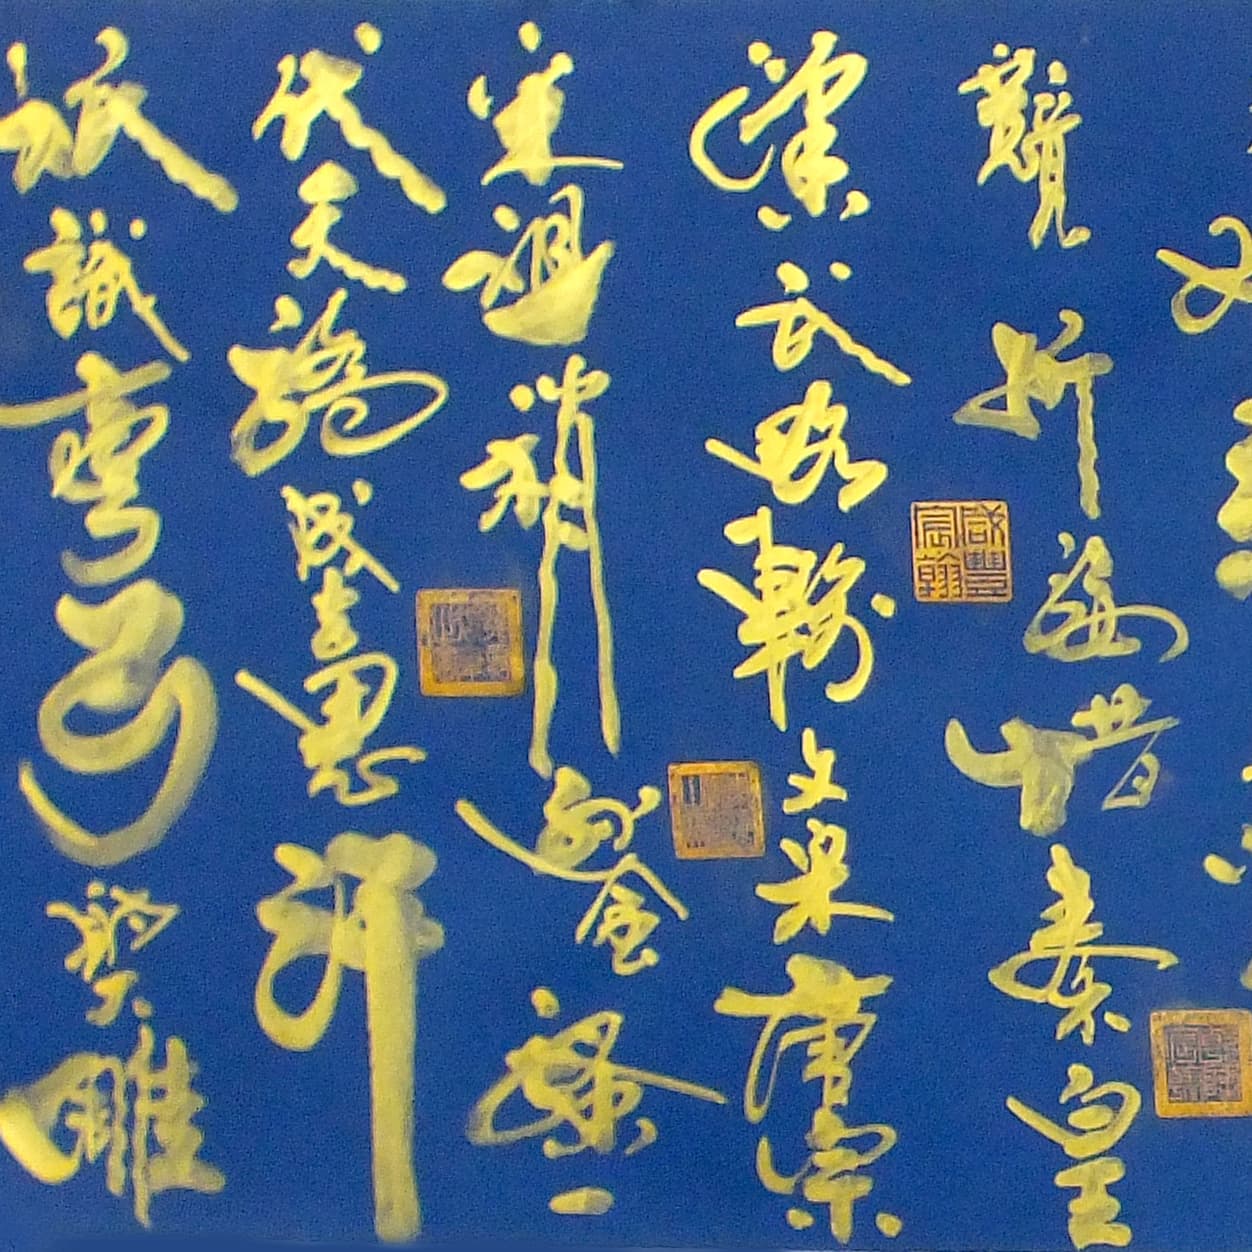 競折腰惜秦皇
漢武略輸文采唐宗
宋祖稍遜風騷一
代天驕成吉思汗
祇識彎弓射大雕
咸豐宸翰